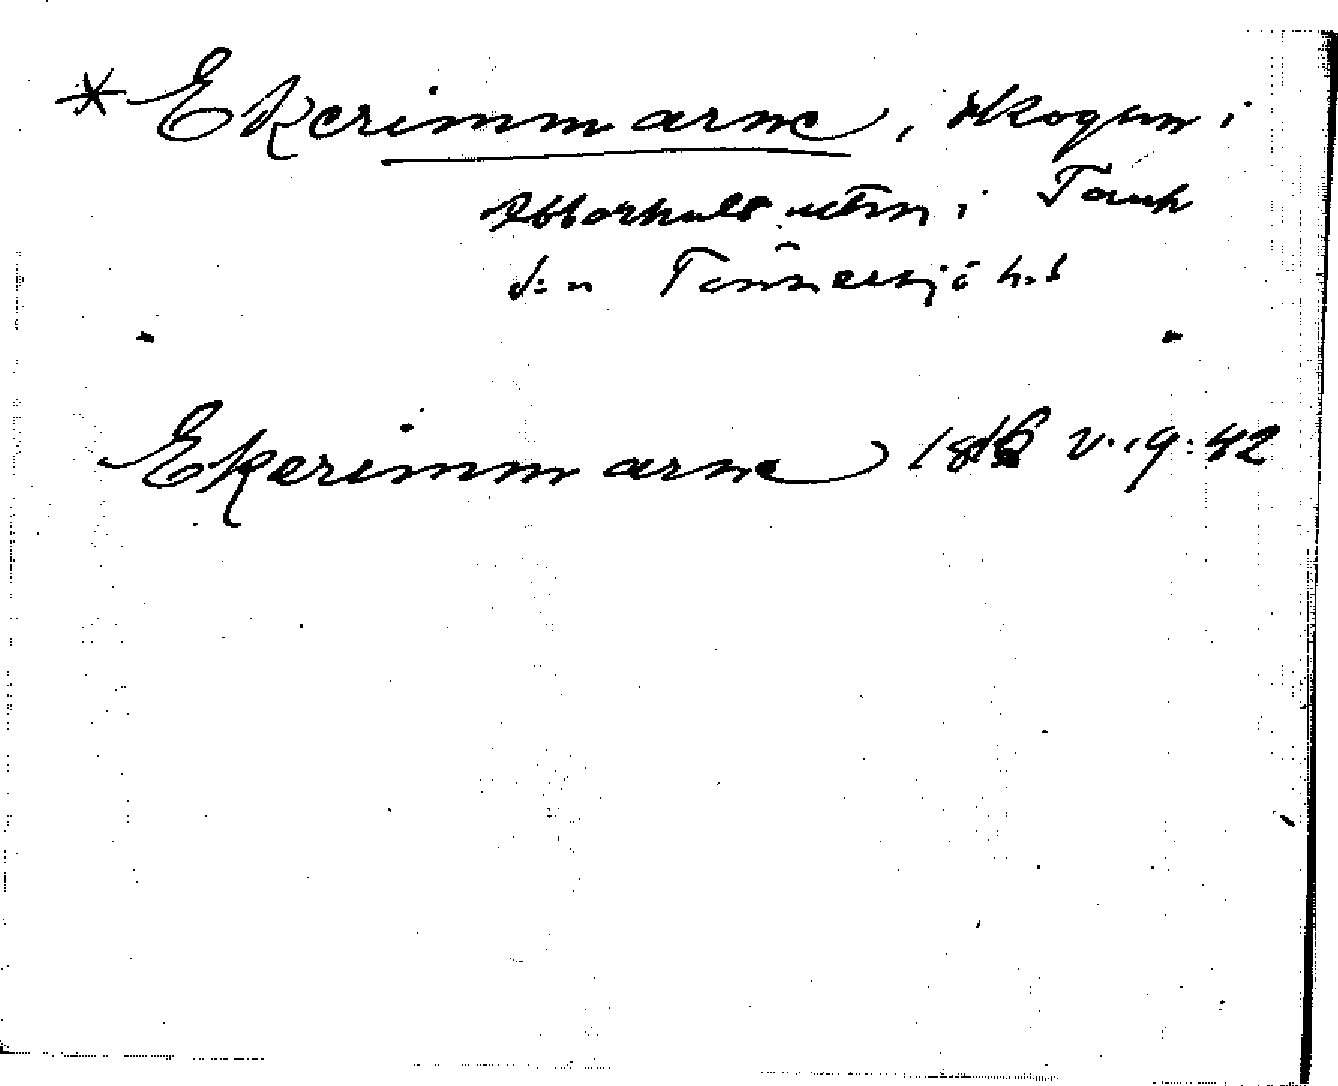 * Ekerimmarne, skogen i
Abborhult utm i Torup
s:n Tönnersjö h:d
Ekerimmarne 18 V. 19:42